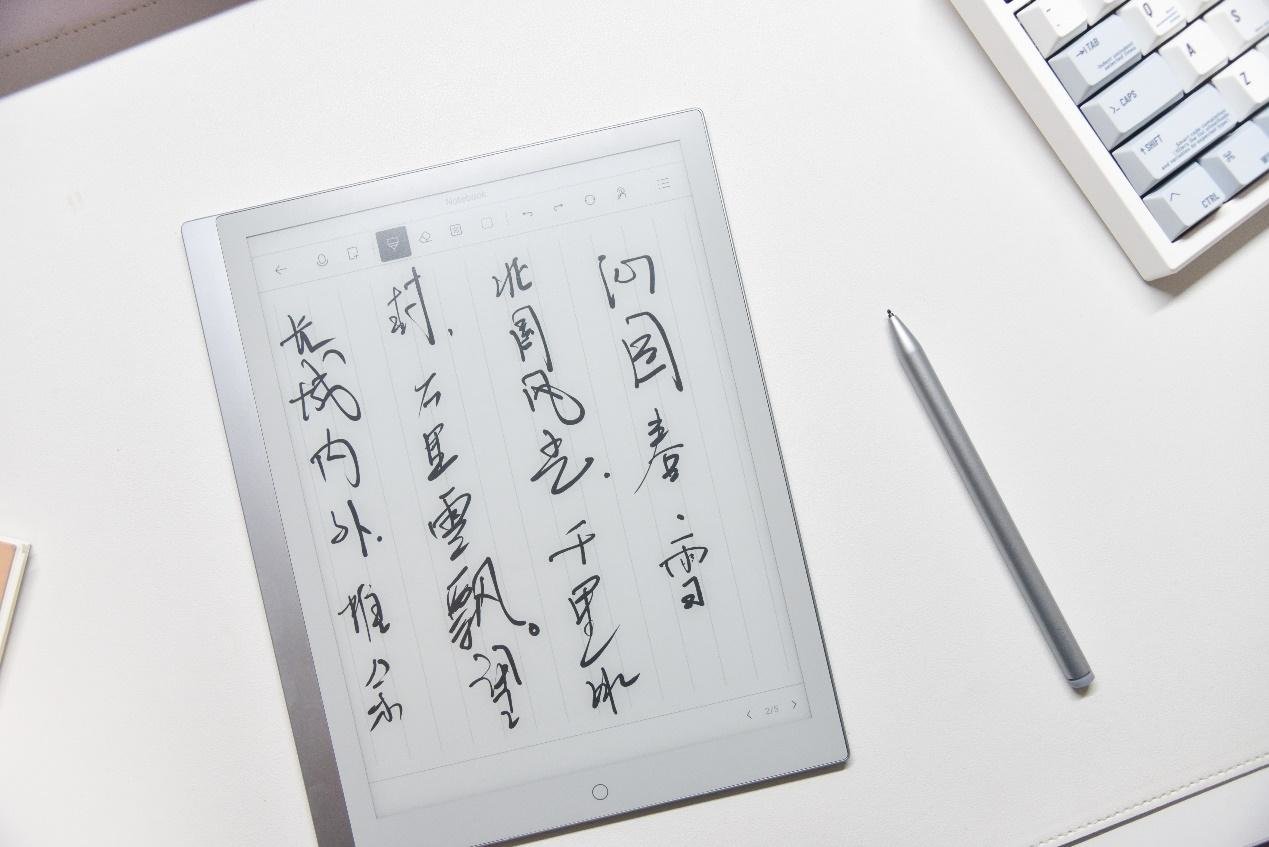 Notebook
沁园春·雪
北国风光.千里冰
封.万里雪飘。望
长城内外.惟余
2/5
Q
TAB
A
S
CAPS
Z
SHIFT
CTRL